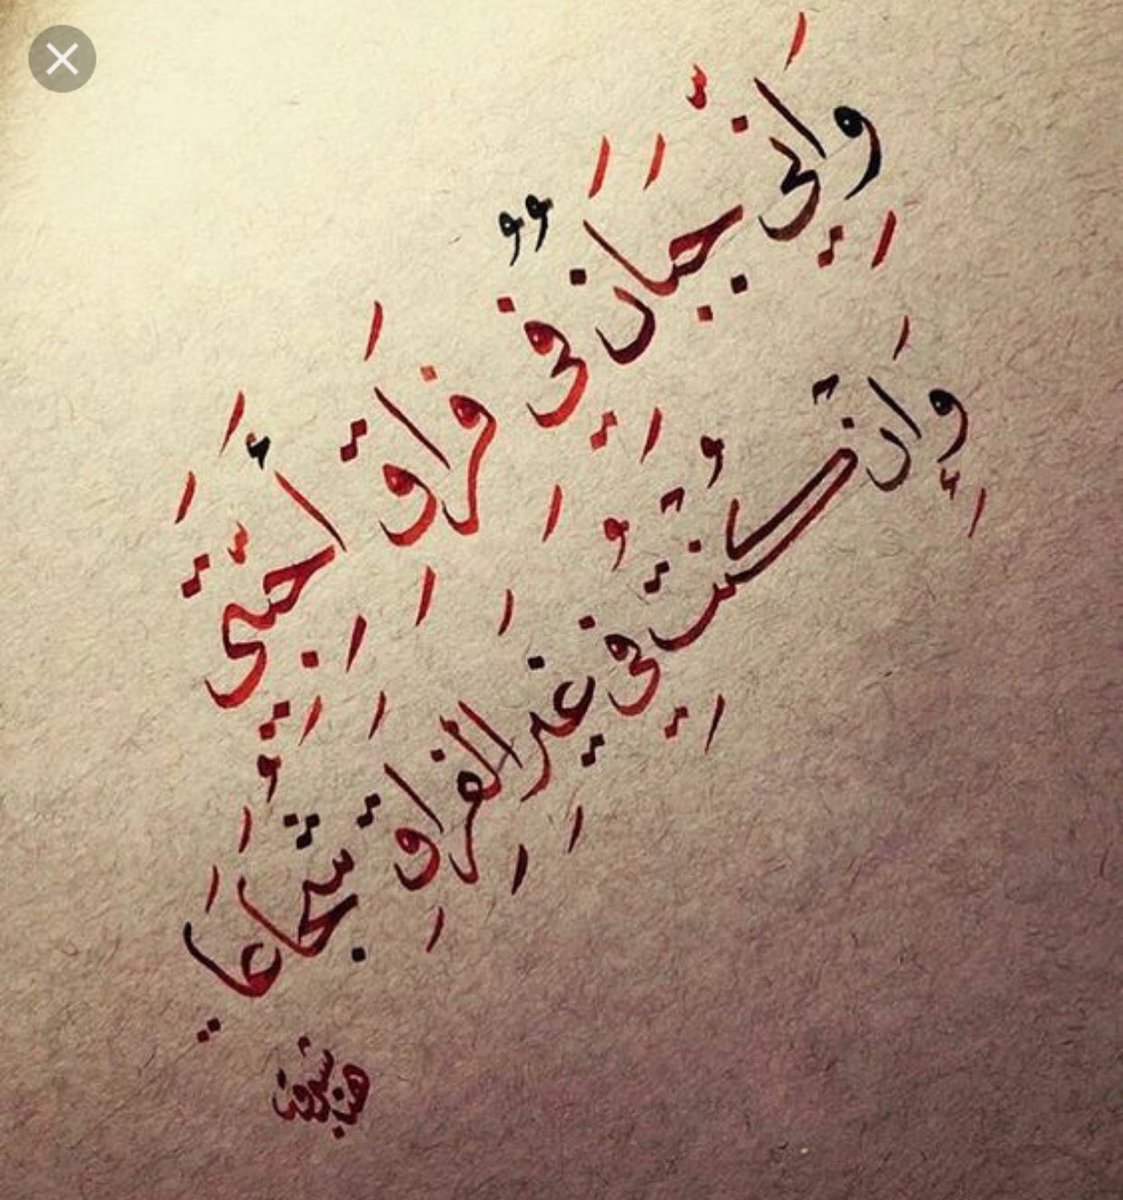 وَاِنِّي جَبَانٌ فِي فِرَاقِ أَحِبَّتِي
وَإِنْ كُنْتُ فِي غَيْرِ الفِرَاقِ شُجَاعَا